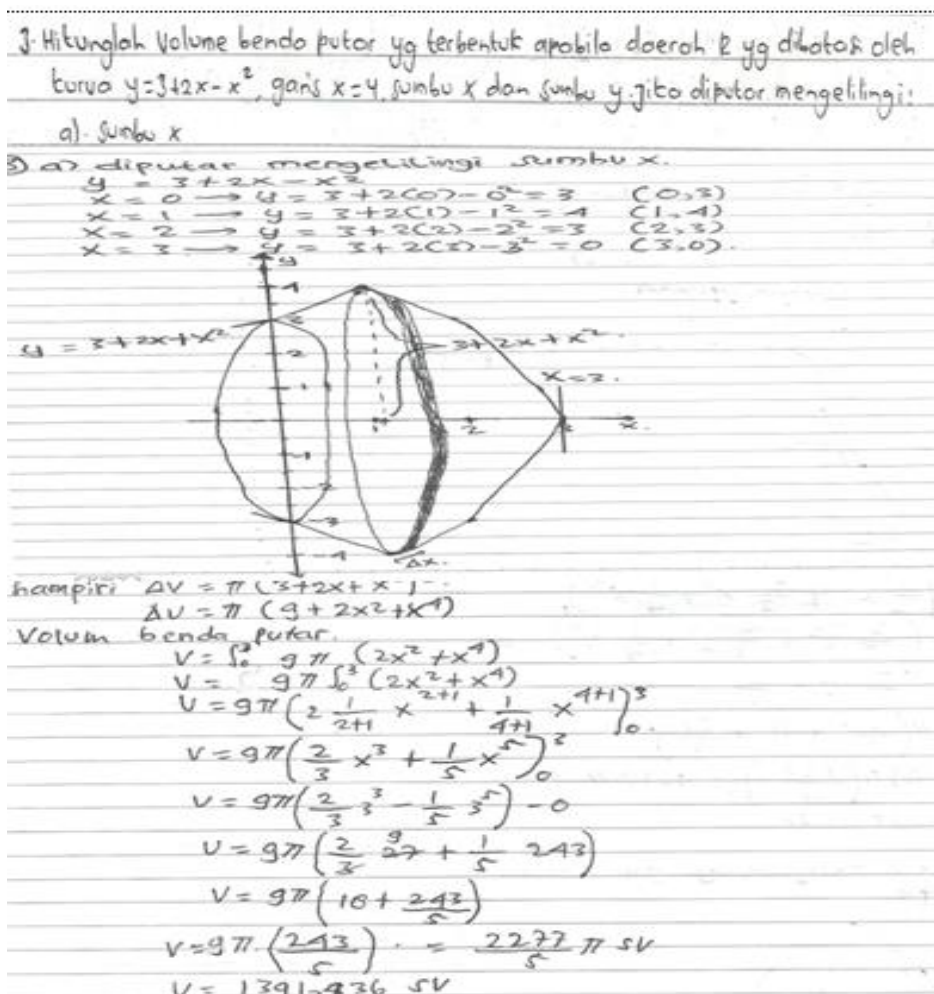 3. Hitunglah Volume benda putar yg terbentuk apabila daerah R yg dibatasi oleh
kurva y=3+2x-x², garis x=4, sumbu x dan sumbu y. Jika diputar mengelilingi:
a). Sumbu x
3) a) diputar mengelilingi sumbu x.
y = 3+2x-x²
x = 0 → y = 3+2(0)-0² = 3 (0,3)
x = 1 → y = 3+2(1)-1² = 4 (1,4)
x = 2 → y = 3+2(2)-2² = 3 (2,3)
x = 3 → y = 3+2(3)-3² = 0 (3,0).
y
4
3
y = 3+2x+x²
3+2x+x².
2
1
x=3.
2
x.
-1
-2
-3
-4
Δx.
hampiri ΔV = π (3+2x+x
ΔV = π (9+2x²+x⁴)
Volum benda putar.
V = ∫₀³ 9π (2x²+x⁴)
V = 9π ∫₀³ (2x²+x⁴)
V = 9π (2 1/2+1 x²⁺¹ + 1/4+1 x⁴⁺¹)³₀.
V = 9π (2/3 x³ + 1/5 x⁵)³₀
V = 9π (2/3 3³ - 1/5 3⁵) - 0
V = 9π (2/3 27 9 + 1/5 243)
V = 9π (18 + 243/5)
V = 9π. (243/5) . = 2277/5 π SV
SV